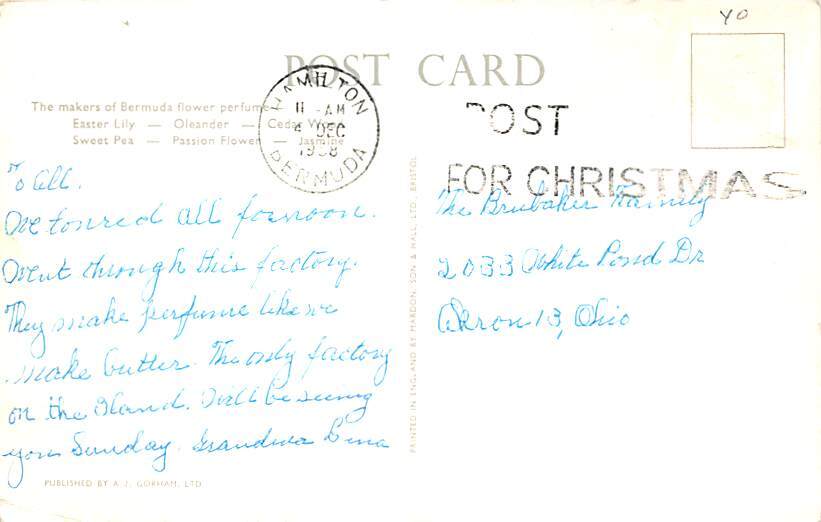 YO
POST CARD
The makers of Bermuda flower perfume
Easter Lily — Oleander — Cedar Wood
Sweet Pea — Passion Flower — Jasmine
HAMILTON
11 - AM
4 DEC
BERMUDA
POST
FOR CHRISTMAS
To All.
We tonred all fornoon.
Went through this factory.
They make perfume like we
make butter. The only factory
on the Iland. Will be seeing
you Sunday. Grandma Lena
The Brubaker Family
2033 White Pond Dr
Akron 13, Ohio
PRINTED IN ENGLAND BY MARDON, SON & HALL, LTD., BRISTOL
PUBLISHED BY A. J. GORHAM, LTD.